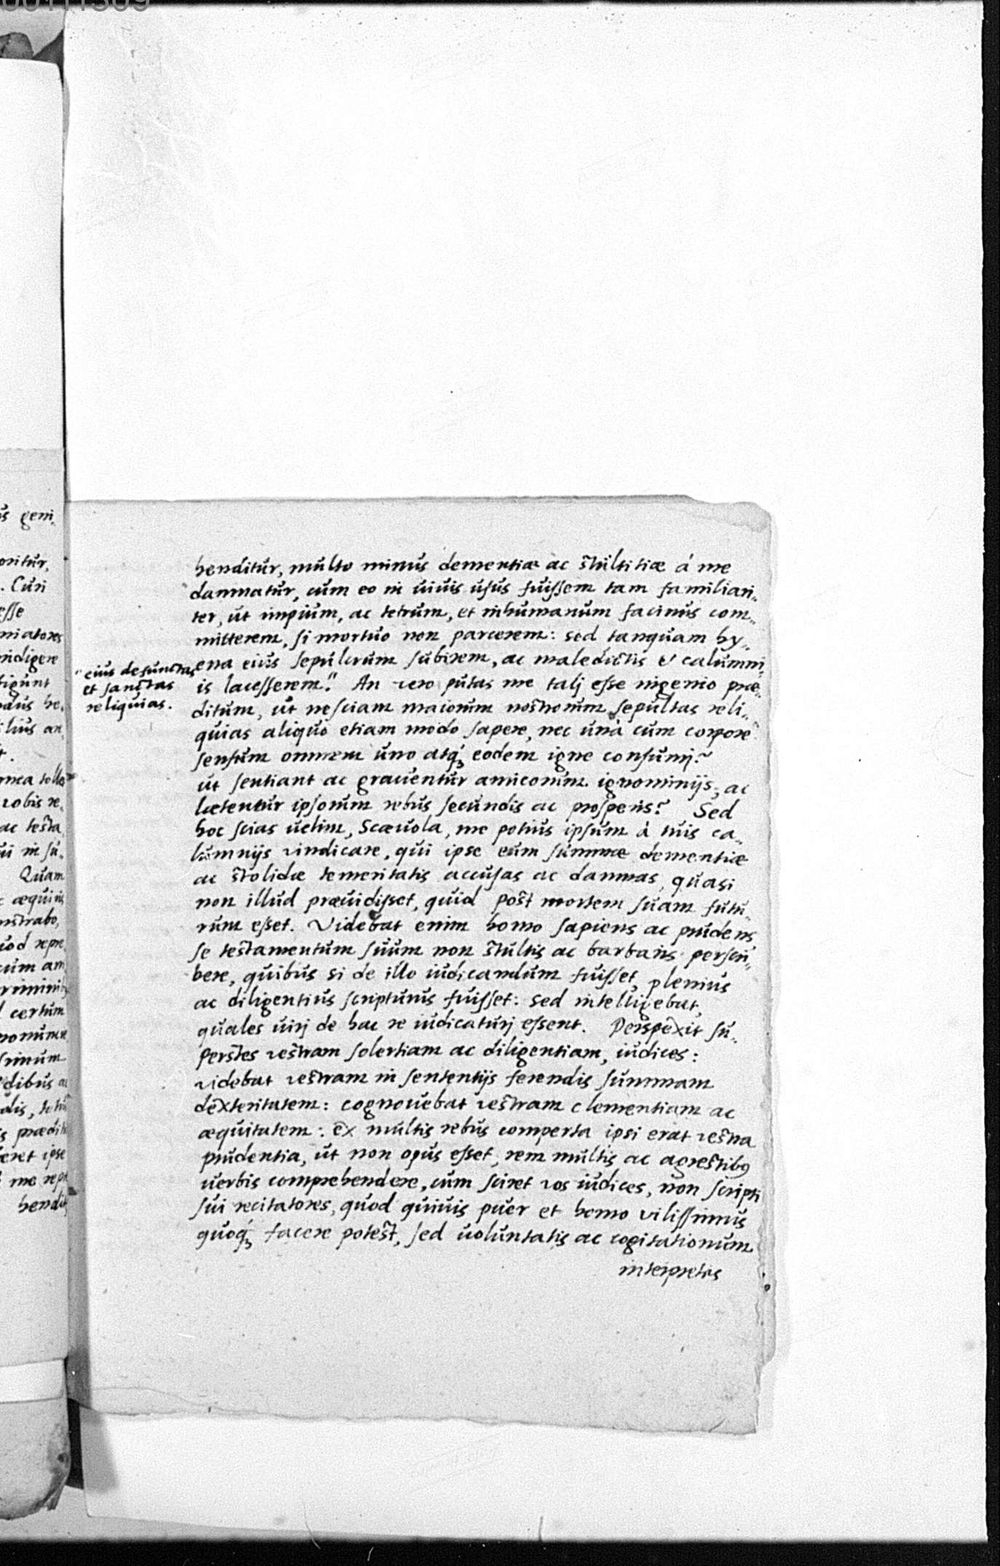 henditur, multo minus dementiæ ac stultitiæ à me
damnatur, cum eo in uiuis usus fuissem tam familiari-
ter, ut impium, ac tetrum, et inhumanum facinus com-
mitterem, si mortuo non parcerem: sed tanquam hy-
ena eius sepulcrum subirem, ac maledictis & calumni-
" eius defunctas
et sanctas
reliquias.
is lacesserem." An vero putas me talj esse ingenio præ-
ditum, ut nesciam maiorum nostrorum sepultas reli-
quias aliquo etiam modo sapere, nec unà cum corpore
sensum omnem uno atq; eodem igne consumj?
ut sentiant ac grauentur amicorum ignominijs, ac
lætentur ipsorum rebus secundis ac prosperis? Sed
hoc scias uelim, Scæuola, me potius ipsum à tuis ca-
lumnijs vindicare, qui ipse eum summæ dementiæ
ac stolidæ temeritatis accusas ac damnas, quasi
non illud præuidisset, quid post mortem suam futu-
rum esset. Videbat enim homo sapiens ac prudens
se testamentum suum non stultis ac barbaris perscri-
bere, quibus si de illo iudicandum fuisset, plenius
ac diligentius scripturus fuisset: sed intelligebat,
quales uirj de hac re iudicaturj essent. Perspexit su-
perstes vestram solertiam ac diligentiam, iudices:
videbat vestram in sententijs ferendis summam
dexteritatem: cognouebat vestram clementiam ac
æquitatem: ex multis rebus comperta ipsi erat vestra
prudentia, ut non opus esset, rem multis ac agrestibus
uerbis comprehendere, cum sciret vos iudices, non scripti
sui recitatores, quod quiuis puer et homo vilissimus
quoq; facere potest, sed uoluntatis ac cogitationum
interpretes